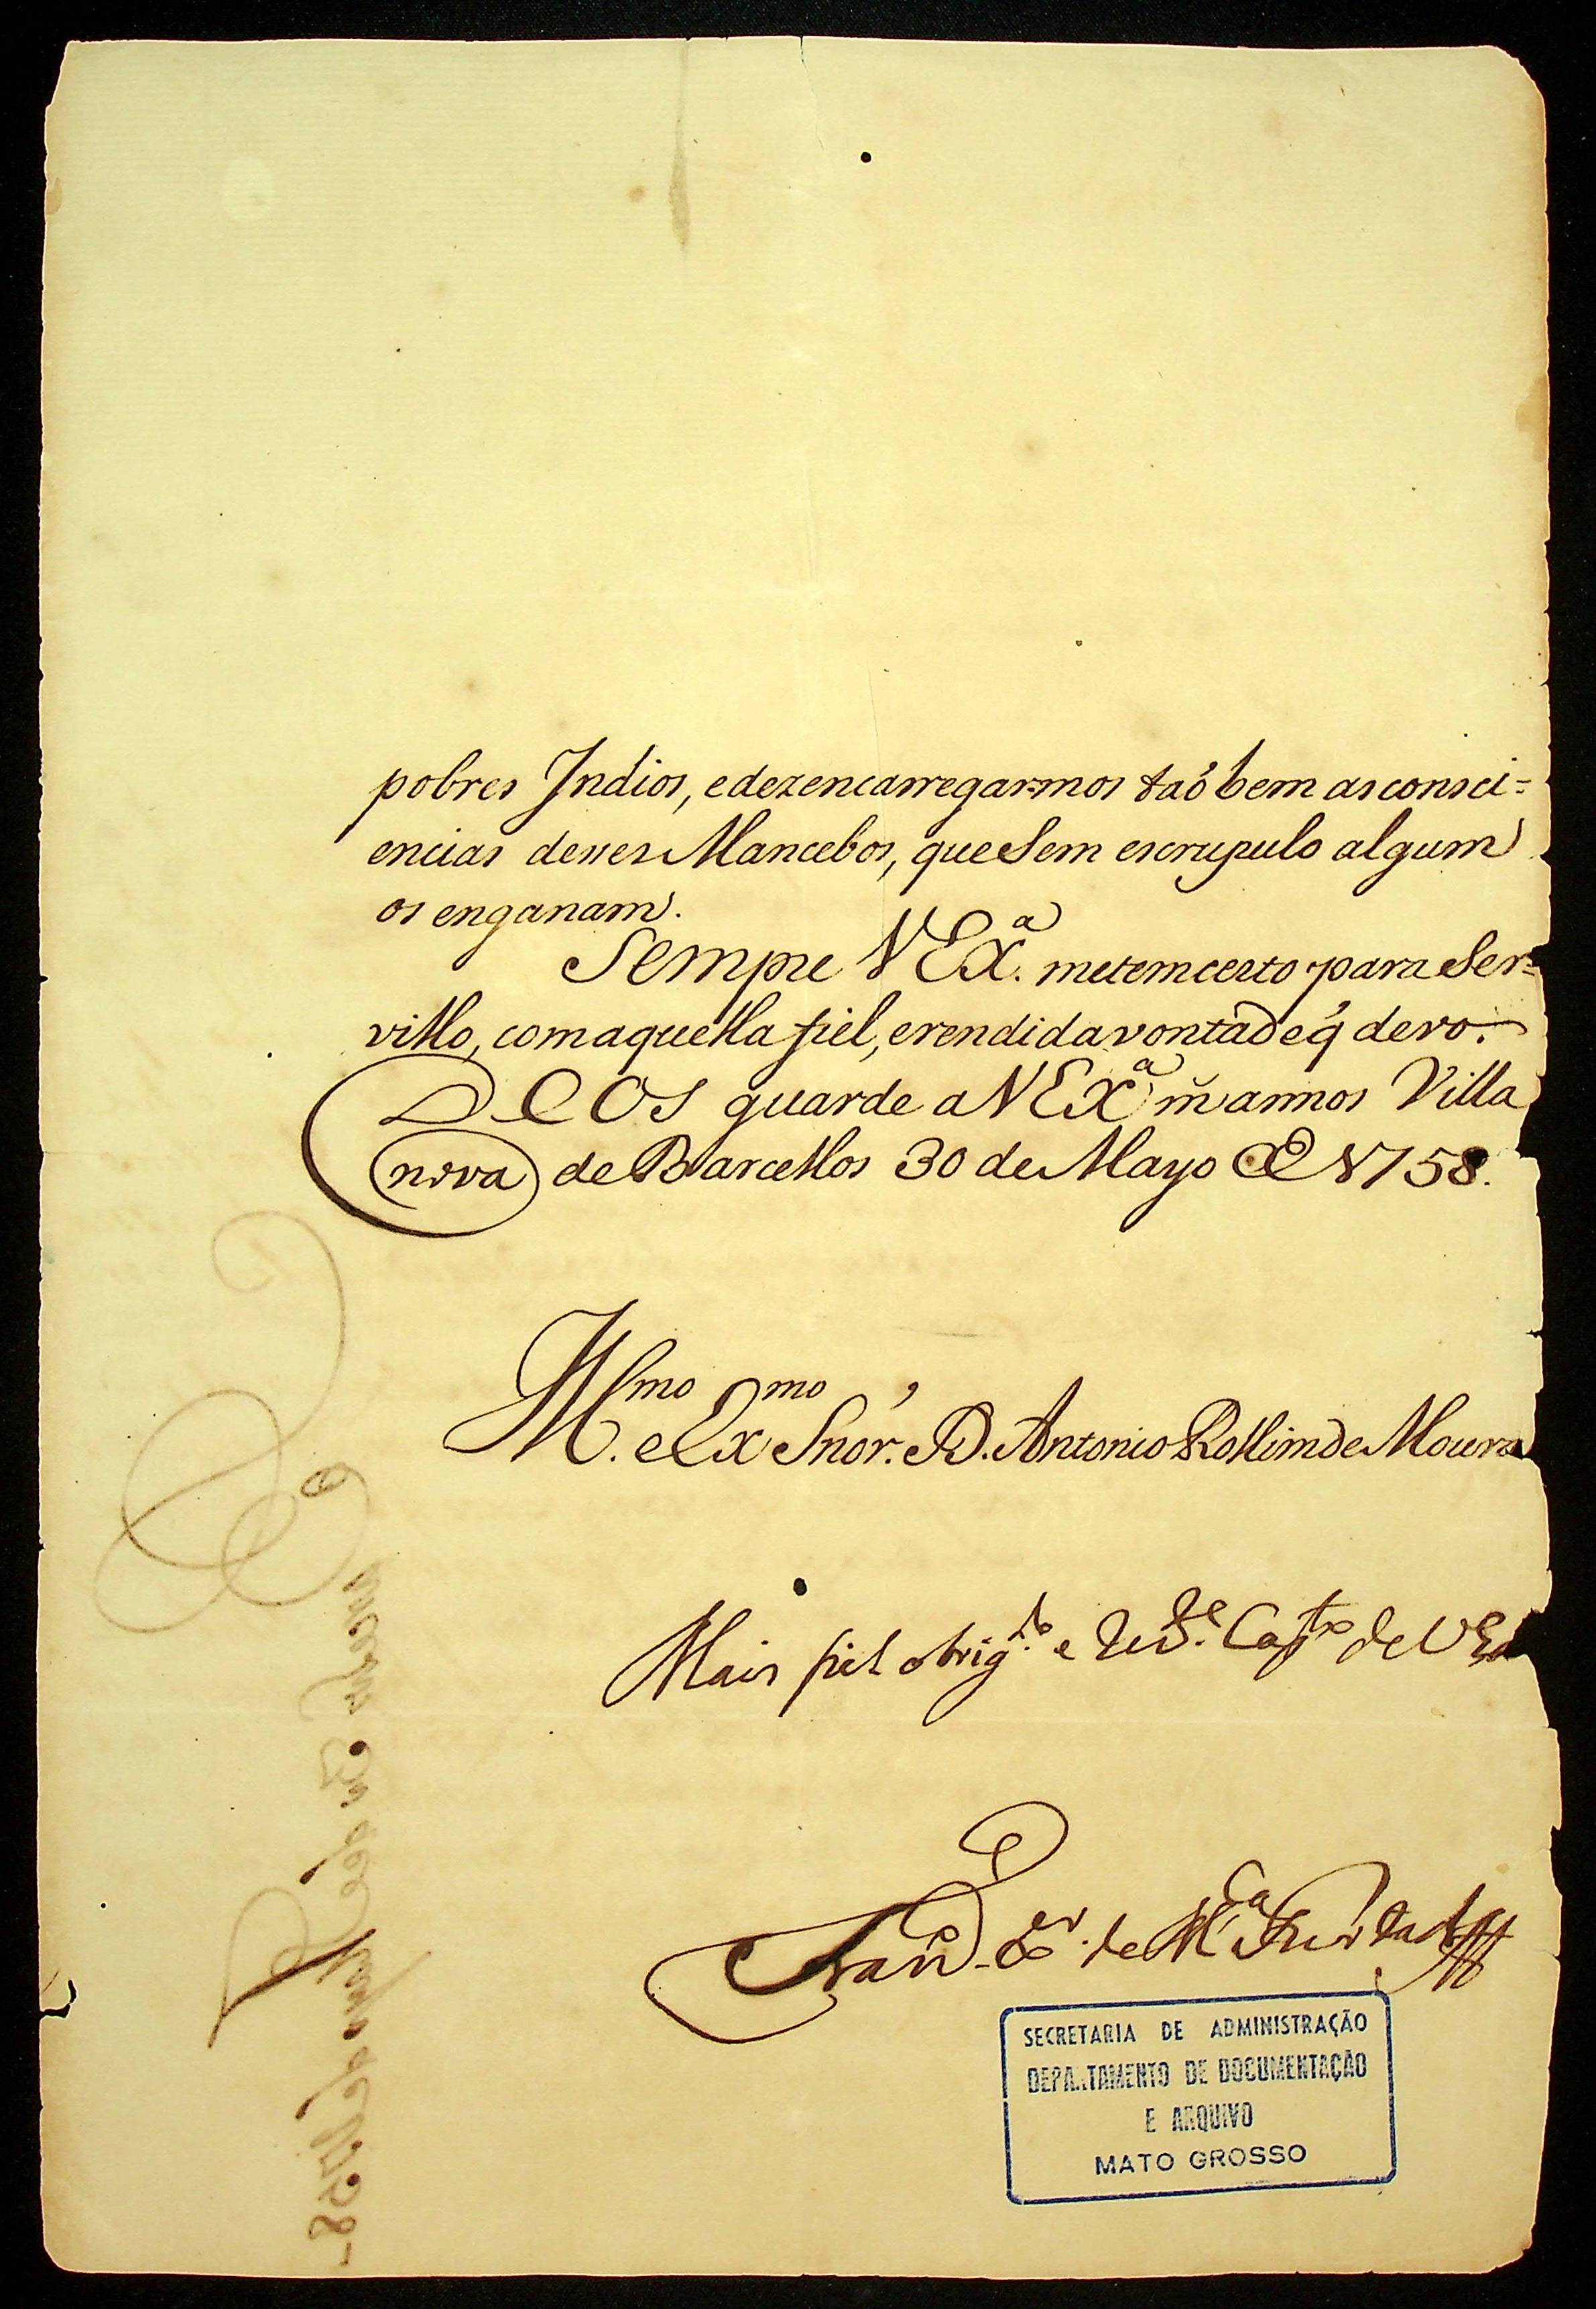 pobres Indios, e dezencarregarmos taõ bem as consci=
encias desses Mancebos, que Sem escrupulo algum
os enganam.
Sempre V Ex.ª me tem certo para Ser=
villo, com aquella fiel, e rendida vontade q̃ devo.
DEOS guarde a V EX.ª m̃ annos Villa
nova de Barcellos 30 de Mayo de 1758.
Ill.mo e Ex.mo Snõr. D. Antonio Rollim de Moura
Mais fiel obrig.do e de V Ex
Fran.co X.er de M.ça Furtado
SECRETARIA DE ADMINISTRAÇÃO
DEPARTAMENTO DE DOCUMENTAÇÃO
E ARQUIVO
MATO GROSSO